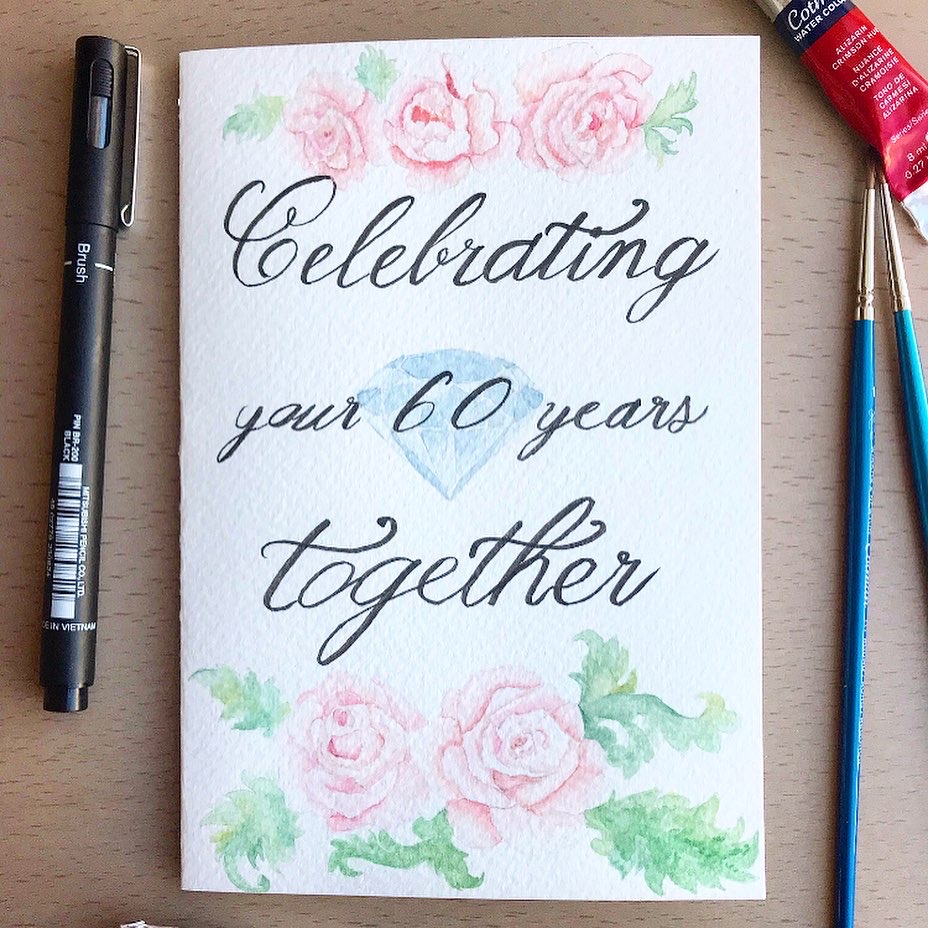 Celebrating
your 60 years
together
Brush
PIN BR-200
BLACK
MITSUBISHI PENCIL CO.,LTD.
IN VIETNAM
WATER COLOU
ALIZARIN
CRIMSON HU
NUANCE
D'ALIZARINE
CRAMOISIE
TONO DE
CARMESÍ
ALIZARINA
8 ml